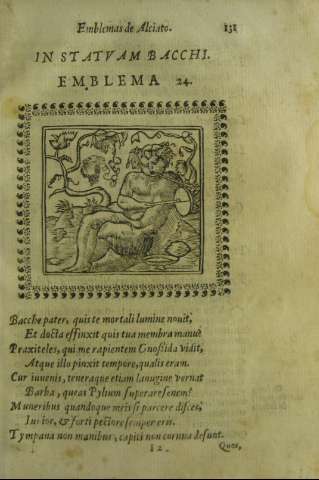 Emblemas de Alciato. 131
IN STATVAM BACCHI.
EMBLEMA 24.
Bacche pater, quis te mortali lumine nouit,
Et docta effinxit quis tua membra manu?
Praxiteles, qui me rapientem Gnoßida vidit,
Atque illo pinxit tempore, qualis eram.
Cur iuuenis, teneraque etiam lanugine vernat
Barba, queas Pylium superare senem?
Muneribus quandoque meis si parcere disces,
Iunior, & forti pectore semper eris.
Tympana non manibus, capiti non cornua desunt.
I 2 Quos,